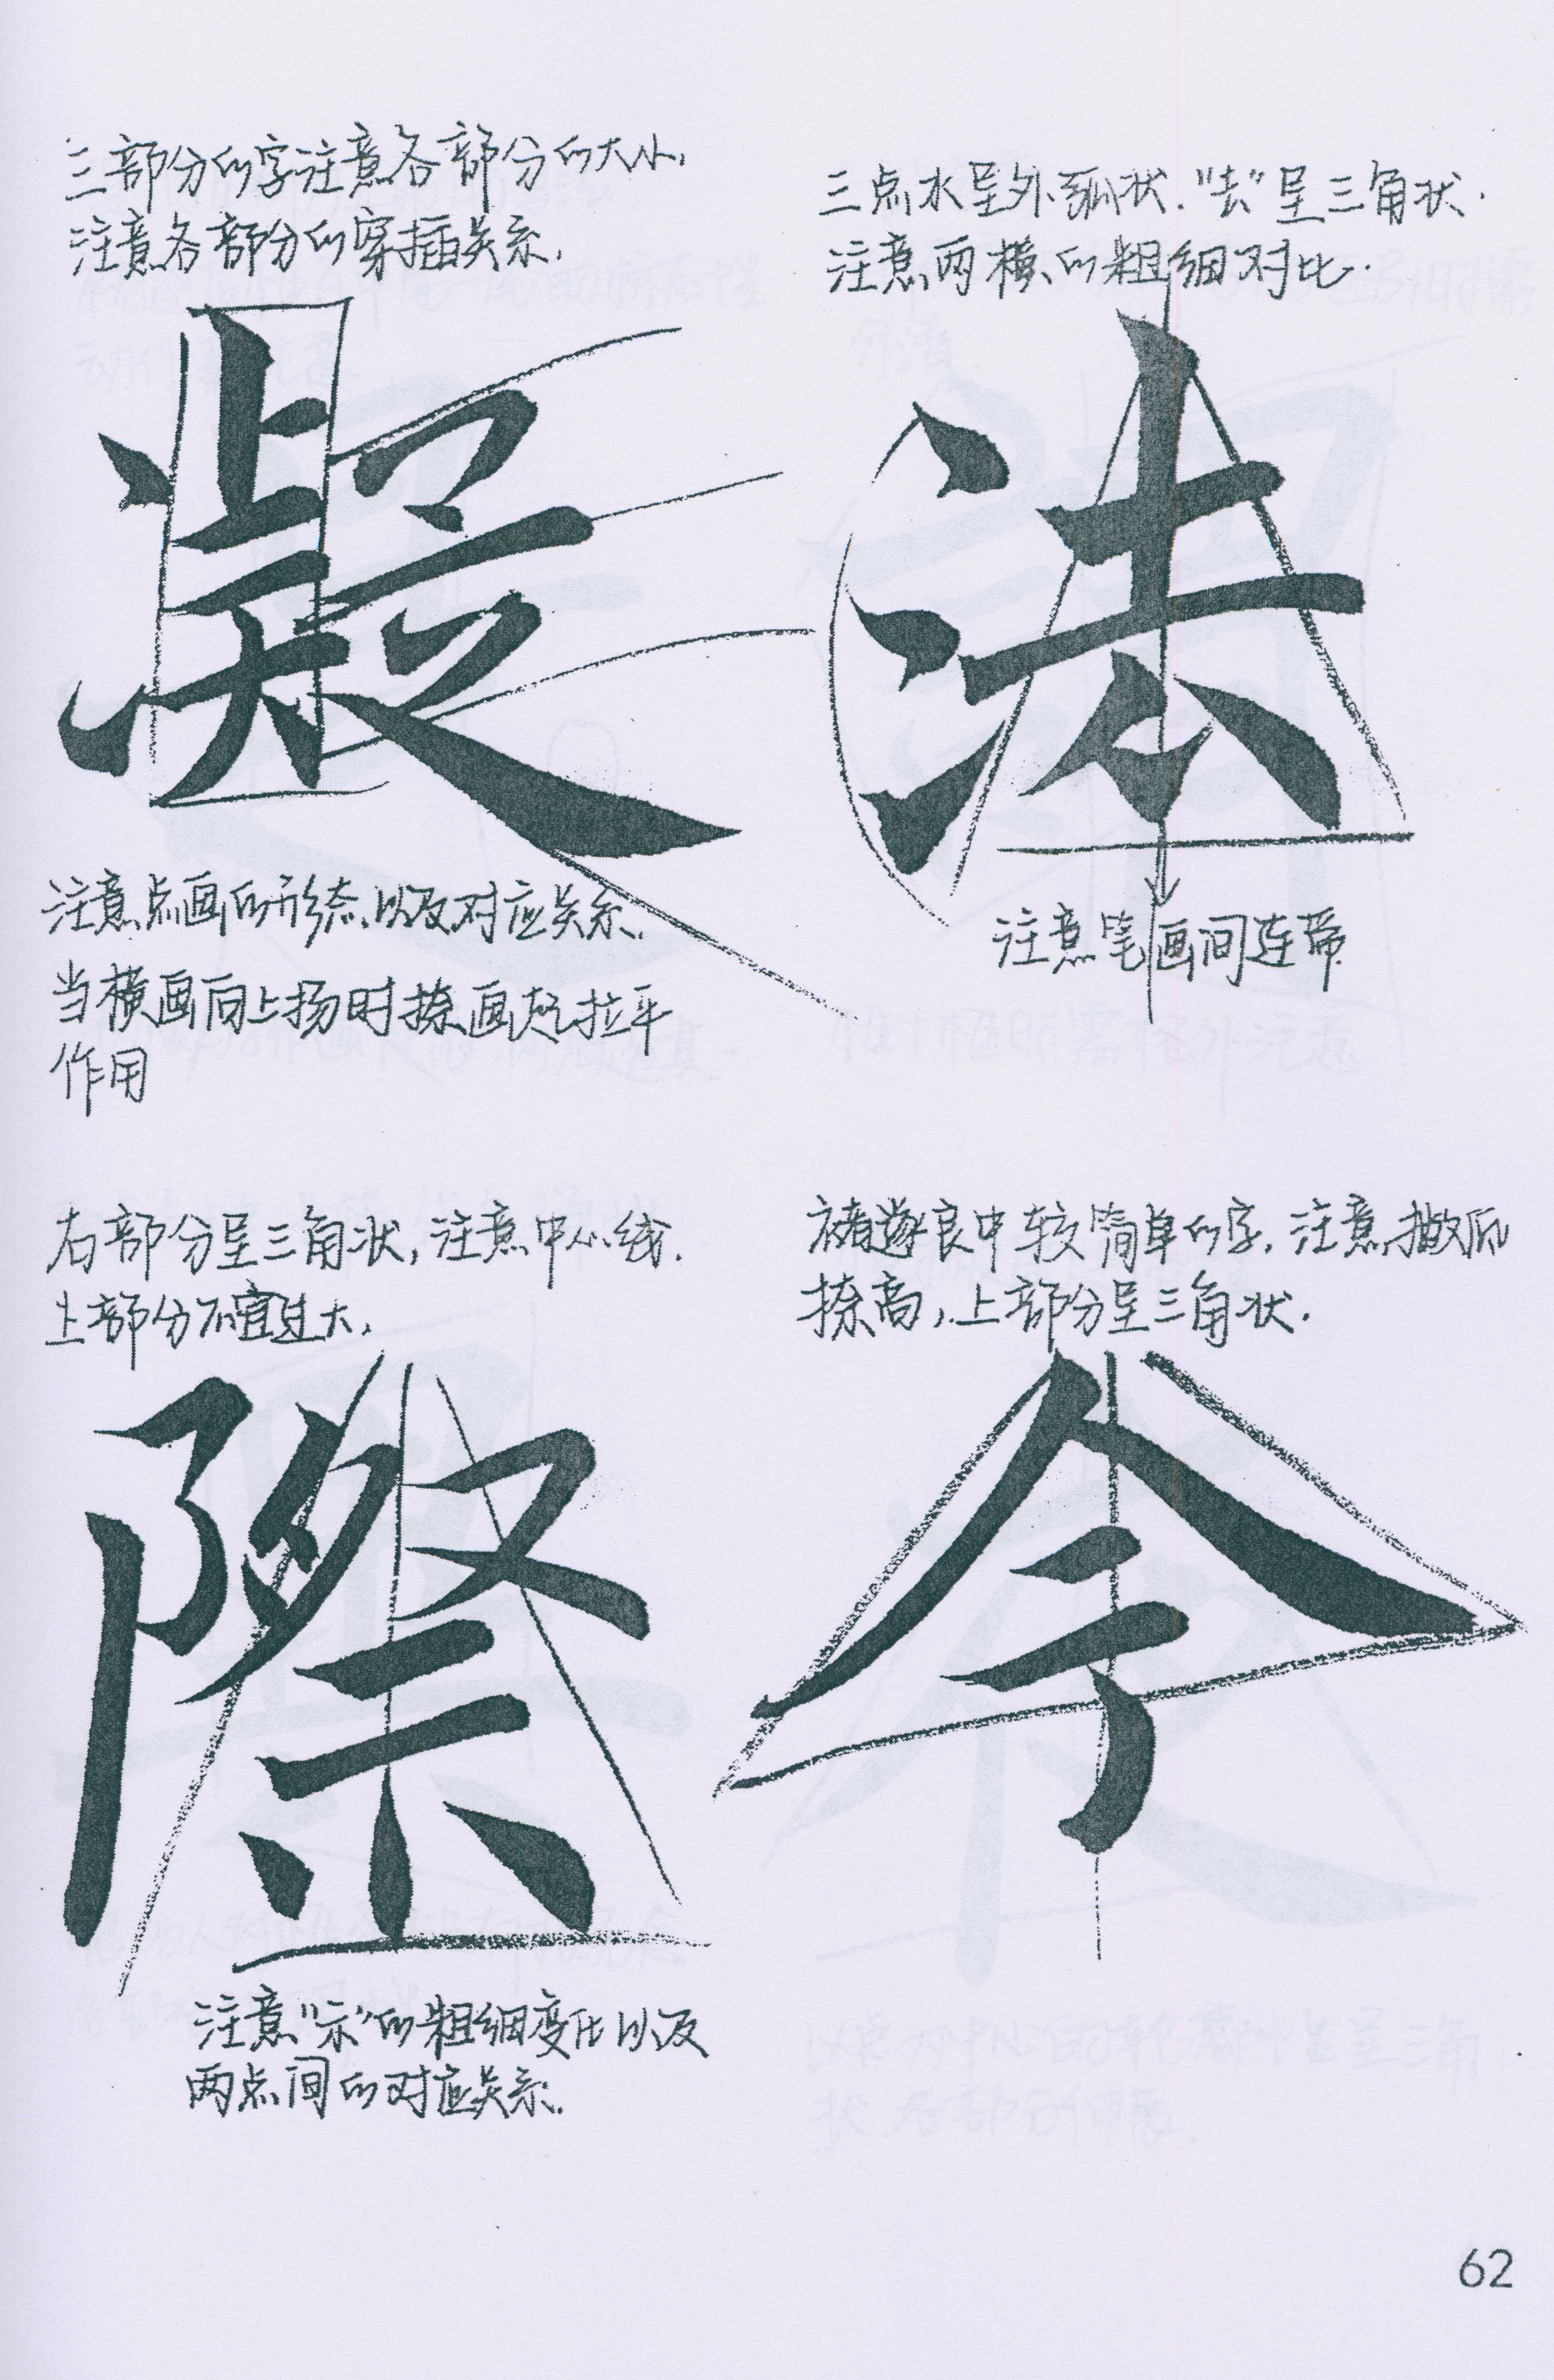 三部分的字注意各部分的大小,
注意各部分的穿插关系.
凝
注意点画的形态,以及对应关系.
当横画向上扬时捺画起拉平
作用
三点水呈外弧状."去"呈三角状.
注意两横的粗细对比.
法
注意笔画间连带
右部分呈三角状,注意中心线.
上部分不宜过大,
際
注意"示"的粗细变化以及
两点间的对应关系.
褚遂良中较简单的字,注意撇低
捺高,上部分呈三角状.
今
62